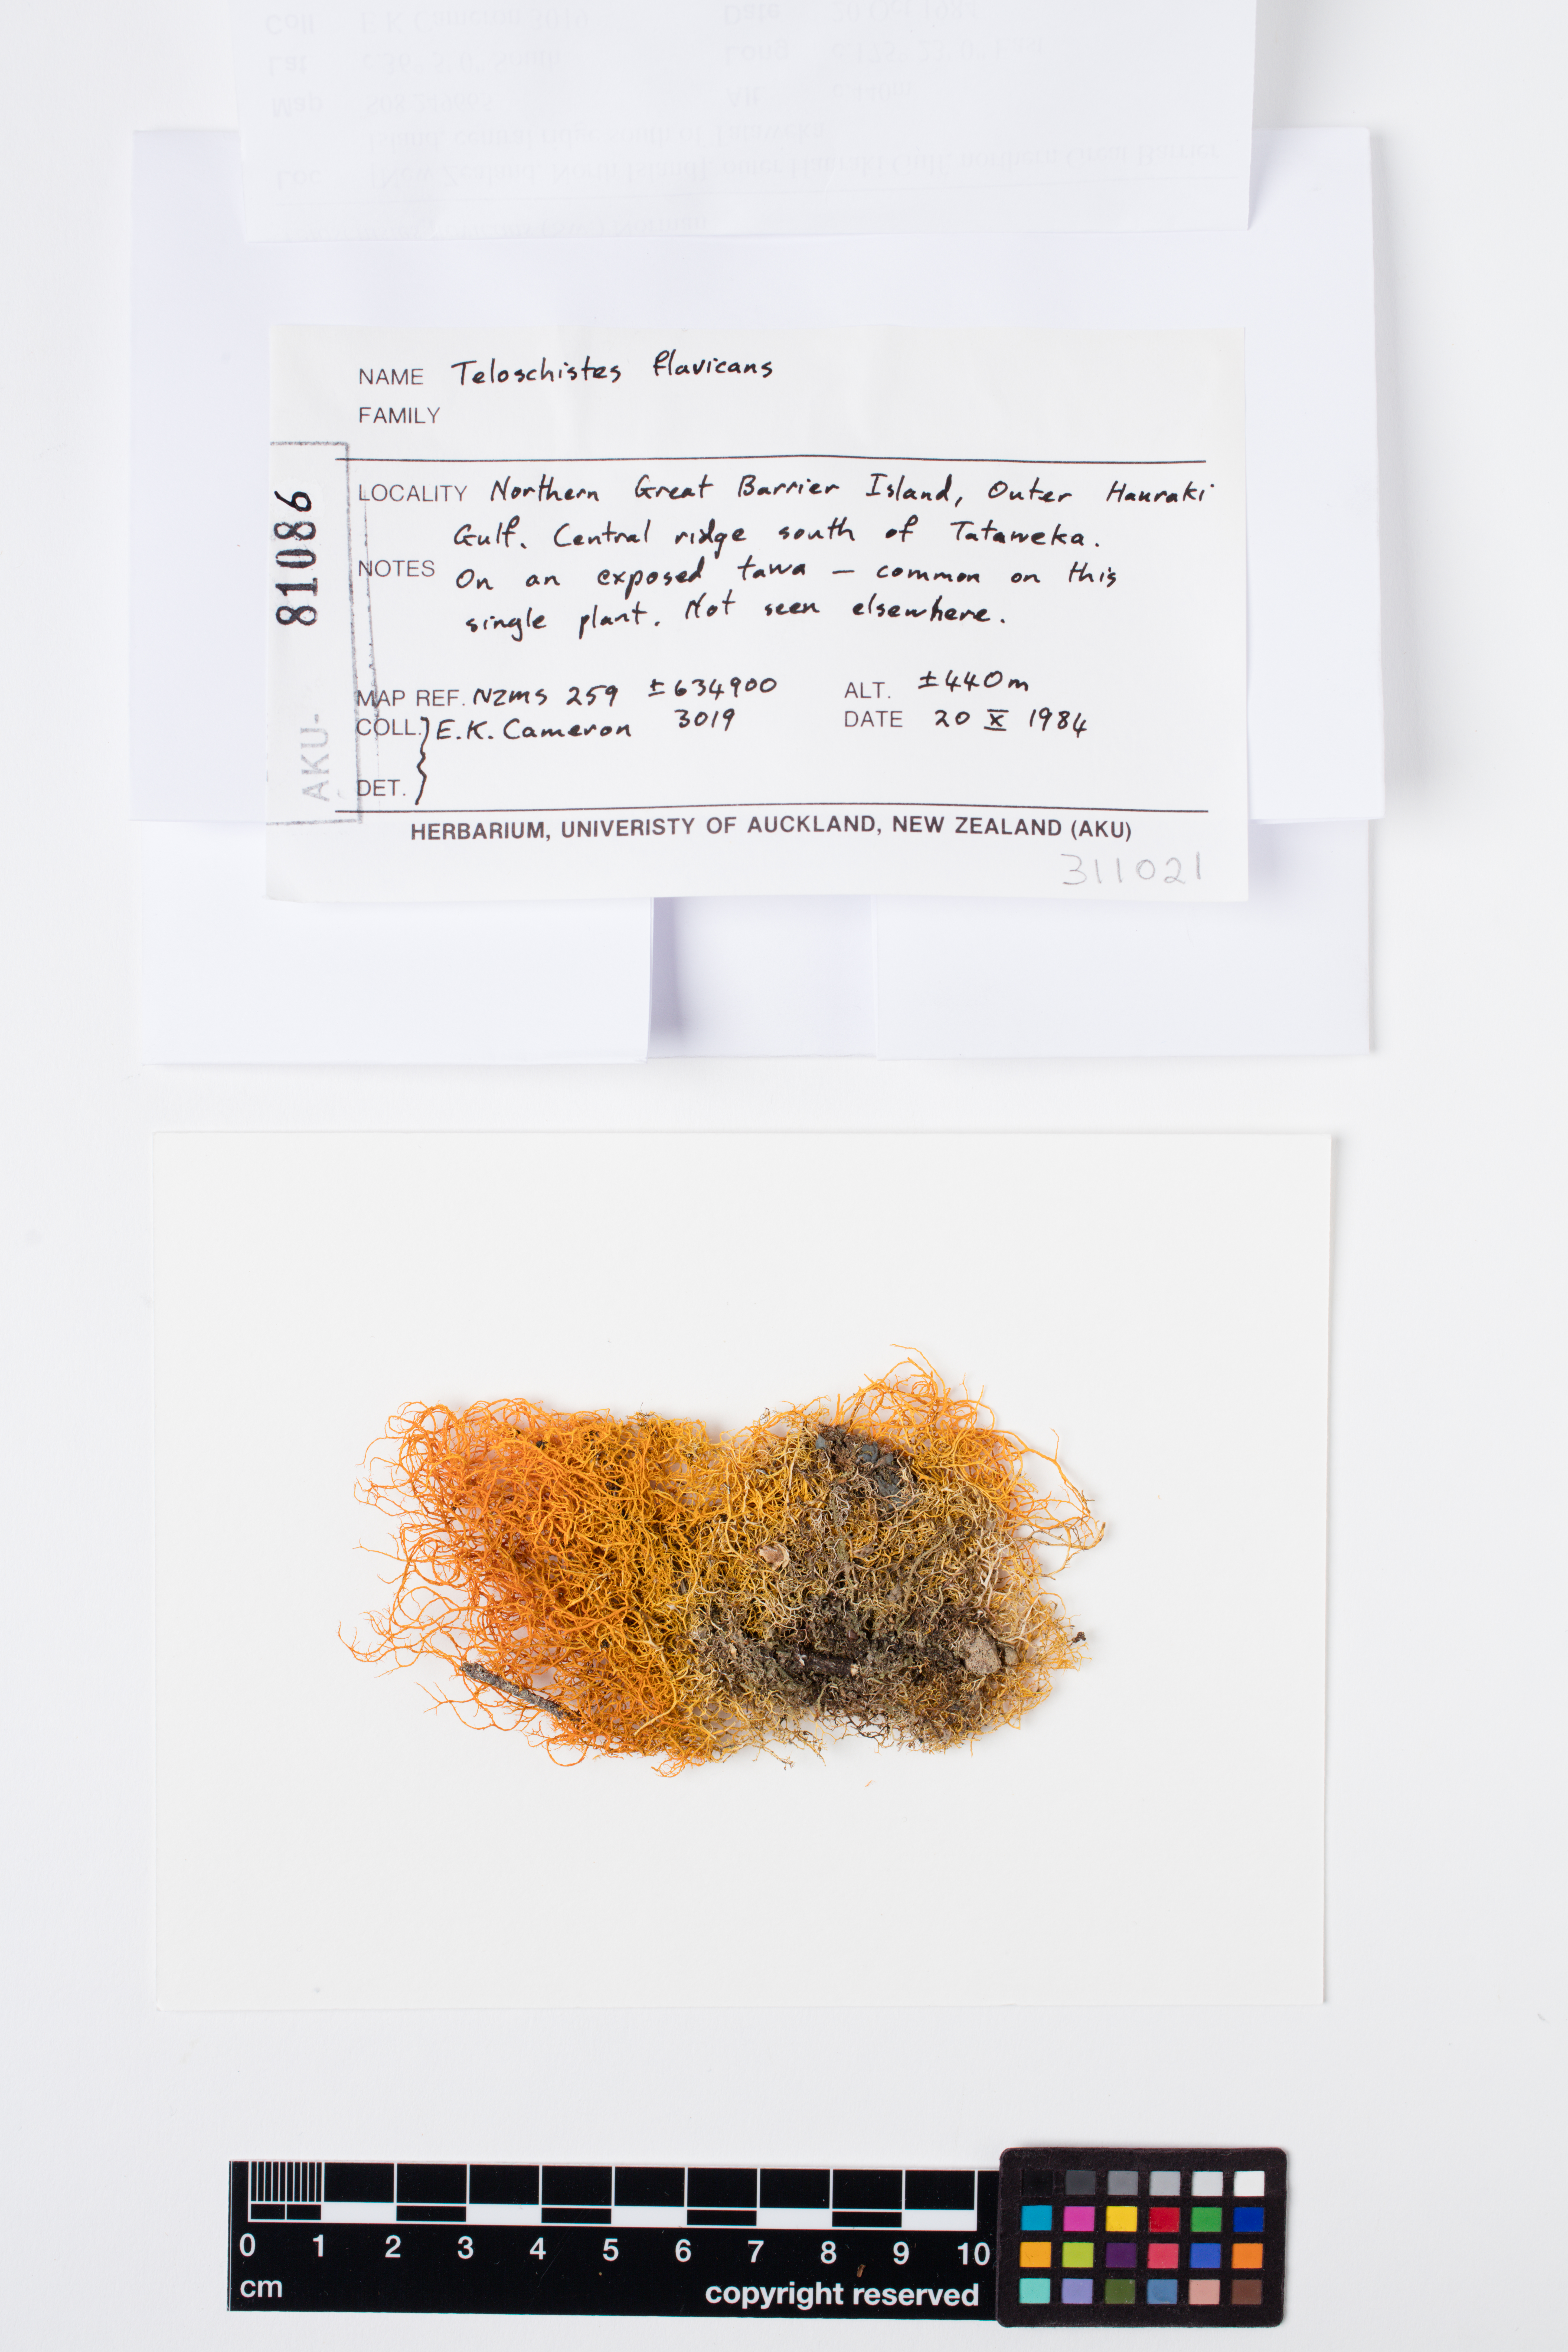 NAME Teloschistes flavicans
FAMILY
LOCALITY Northern Great Barrier Island, Outer Hauraki
Gulf. Central ridge south of Tataweka.
NOTES On an exposed tawa – common on this
single plant. Not seen elsewhere.
MAP REF. NZMS 259 ±634900 ALT. ±440m
COLL. E.K. Cameron 3019 DATE 20 X 1984
DET.
HERBARIUM, UNIVERISTY OF AUCKLAND, NEW ZEALAND (AKU)
311021
AKU- 81086
0 1 2 3 4 5 6 7 8 9 10
cm
copyright reserved